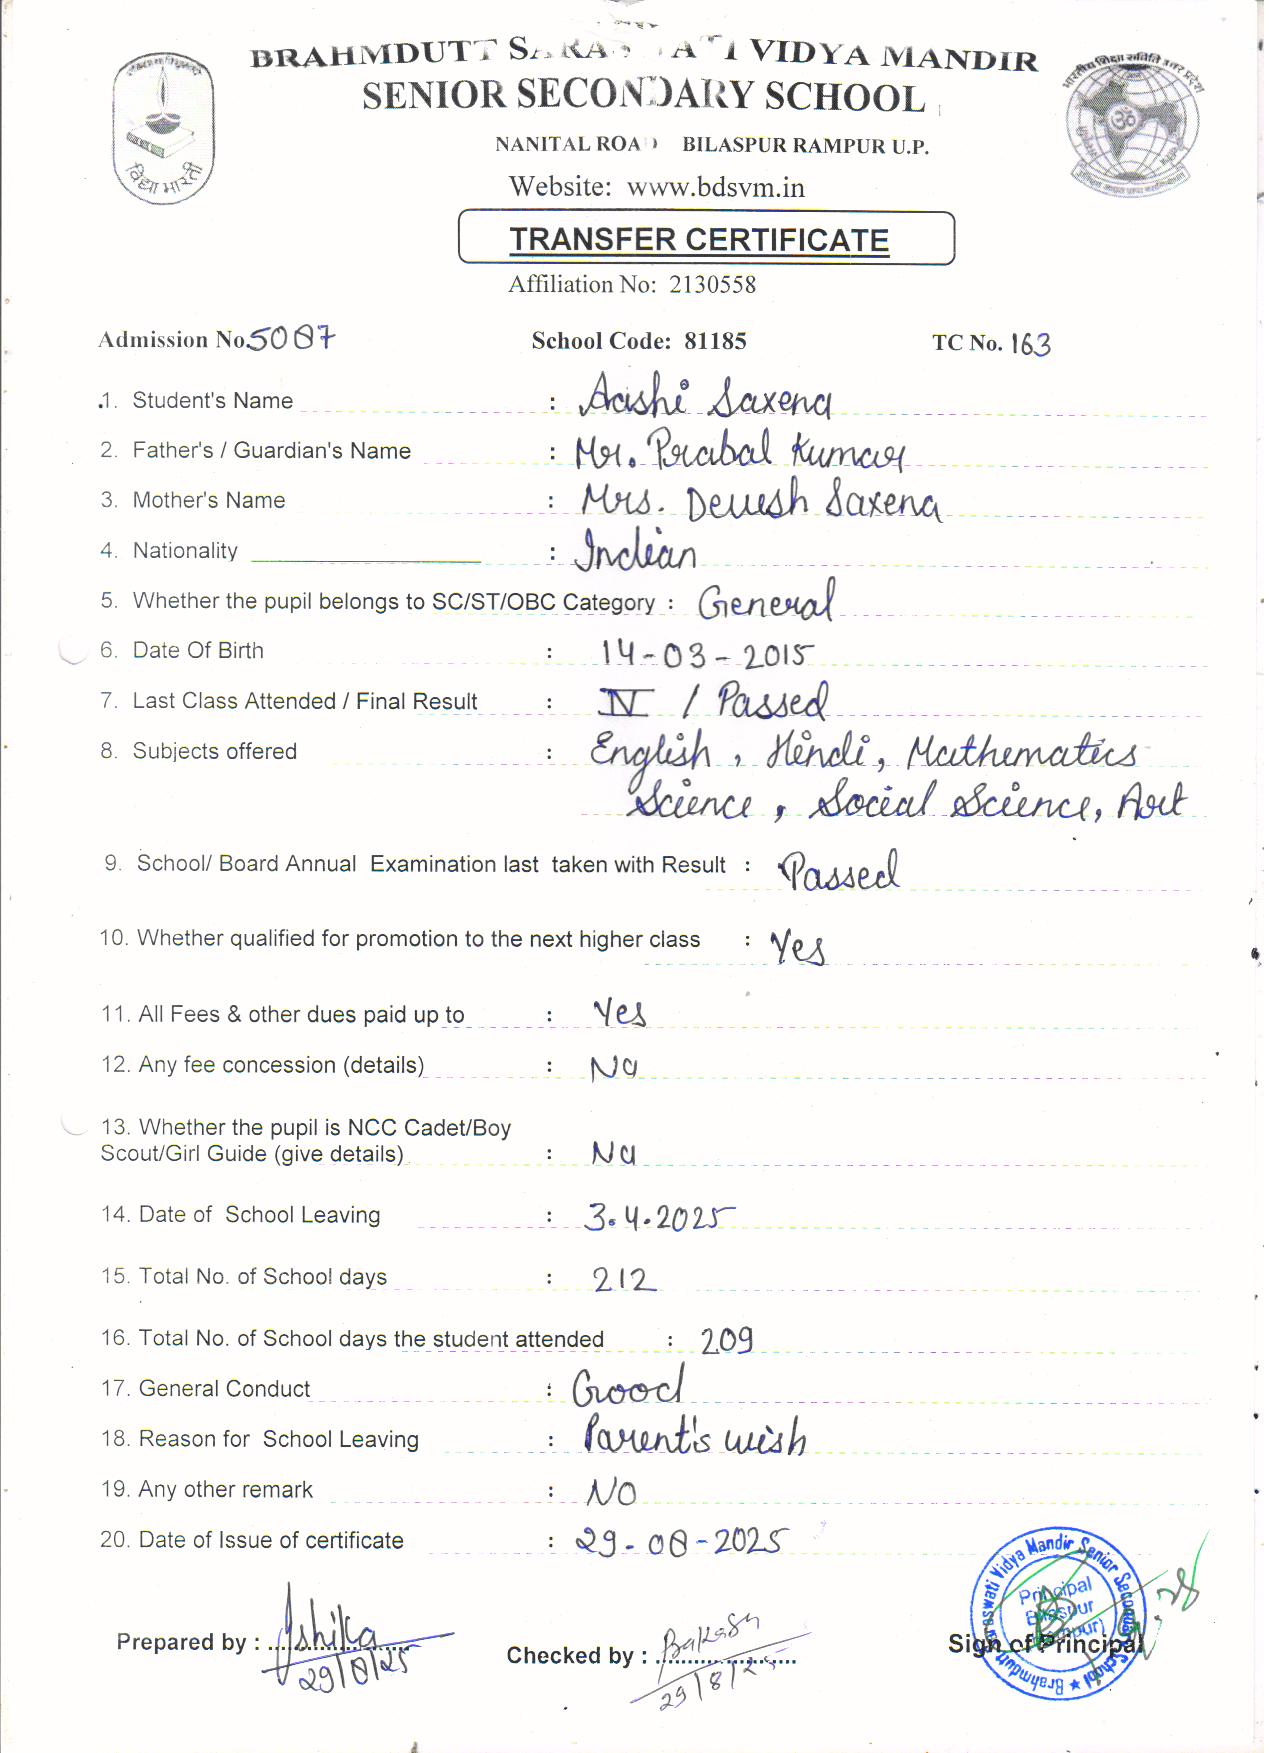 BRAHMDUTT SARASWATI VIDYA MANDIR
SENIOR SECONDARY SCHOOL
NANITAL ROAD BILASPUR RAMPUR U.P.
Website: www.bdsvm.in
विद्या भारती
TRANSFER CERTIFICATE
Affiliation No: 2130558
Admission No. 5087 School Code: 81185 TC No. 163
1. Student's Name : Aashi Saxena
2. Father's / Guardian's Name : Mr. Prabal Kumar
3. Mother's Name : Mrs. Devesh Saxena
4. Nationality : Indian
5. Whether the pupil belongs to SC/ST/OBC Category : General
6. Date Of Birth : 14-03-2015
7. Last Class Attended / Final Result : IV / Passed
8. Subjects offered : English, Hindi, Mathematics
Science, Social Science, Art
9. School/ Board Annual Examination last taken with Result : Passed
10. Whether qualified for promotion to the next higher class : Yes
11. All Fees & other dues paid up to : Yes
12. Any fee concession (details) : No
13. Whether the pupil is NCC Cadet/Boy
Scout/Girl Guide (give details) : No
14. Date of School Leaving : 3.4.2025
15. Total No. of School days : 212
16. Total No. of School days the student attended : 209
17. General Conduct : Good
18. Reason for School Leaving : Parent's wish
19. Any other remark : NO
20. Date of Issue of certificate : 29-08-2025
Prepared by : Ishika
29/8/25
Checked by :
29/8/25
Sign of Principal
Principal
Bilaspur
Brahmdutt Saraswati Vidya Mandir Senior Secondary School